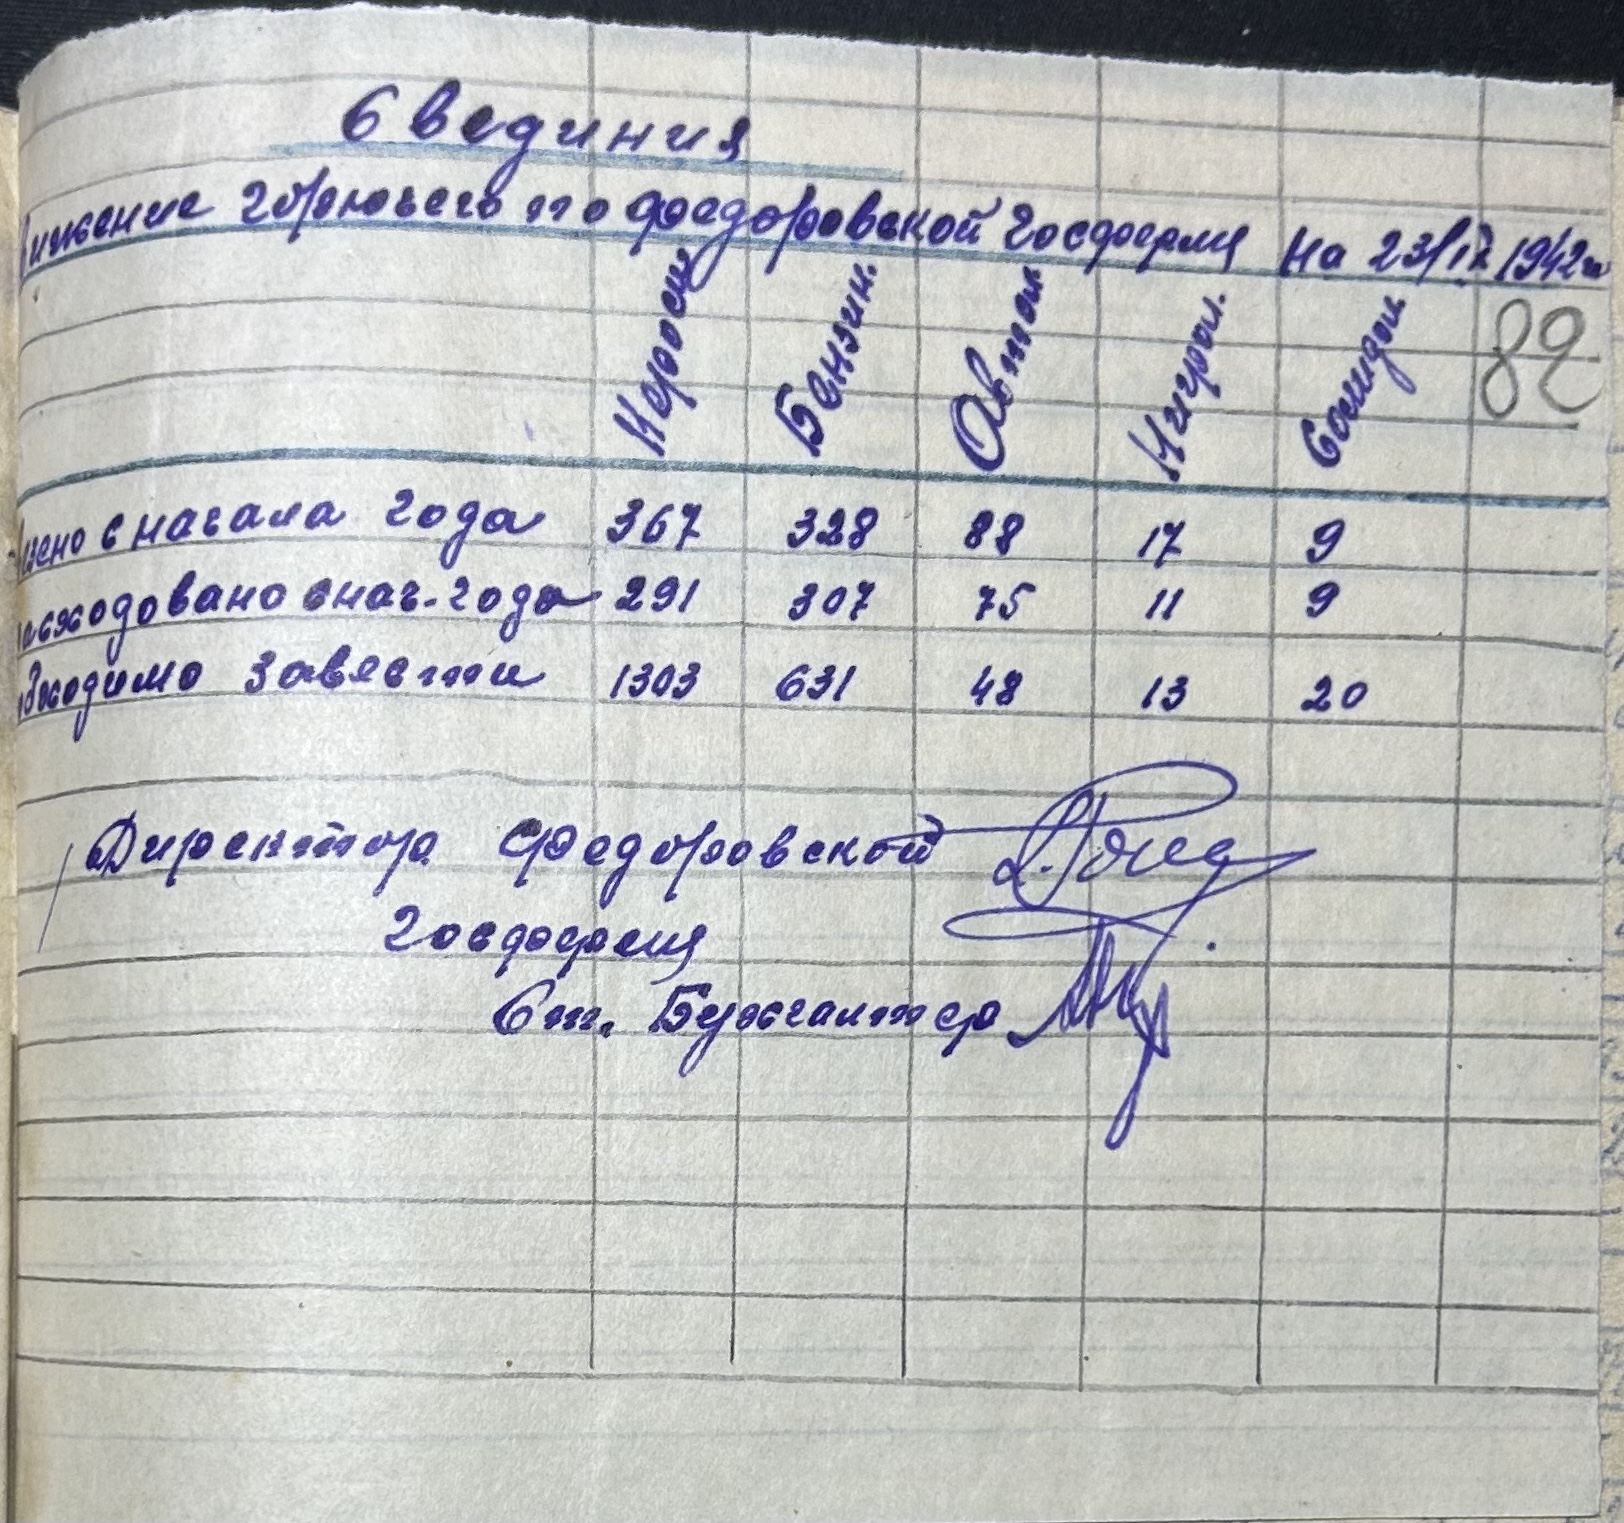 Свединия
вижение горючего по Федоровской Госферми на 23/IX 1942г
82
Керосин Бензин. Автол. Нигрол. Солидол
зено с начала года 367 328 88 17 9
асходовано с нач. года 291 307 75 11 9
обходимо завести 1303 631 48 13 20
Директор Федоровской
Госферми
Ст. Бухгалтер